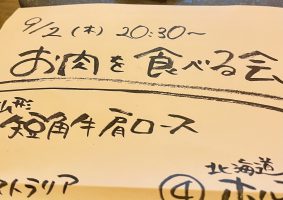 9/2(木) 20:30〜
お肉を食べる会
山形
短角牛肩ロース
北海道
ストラリア
④ホル